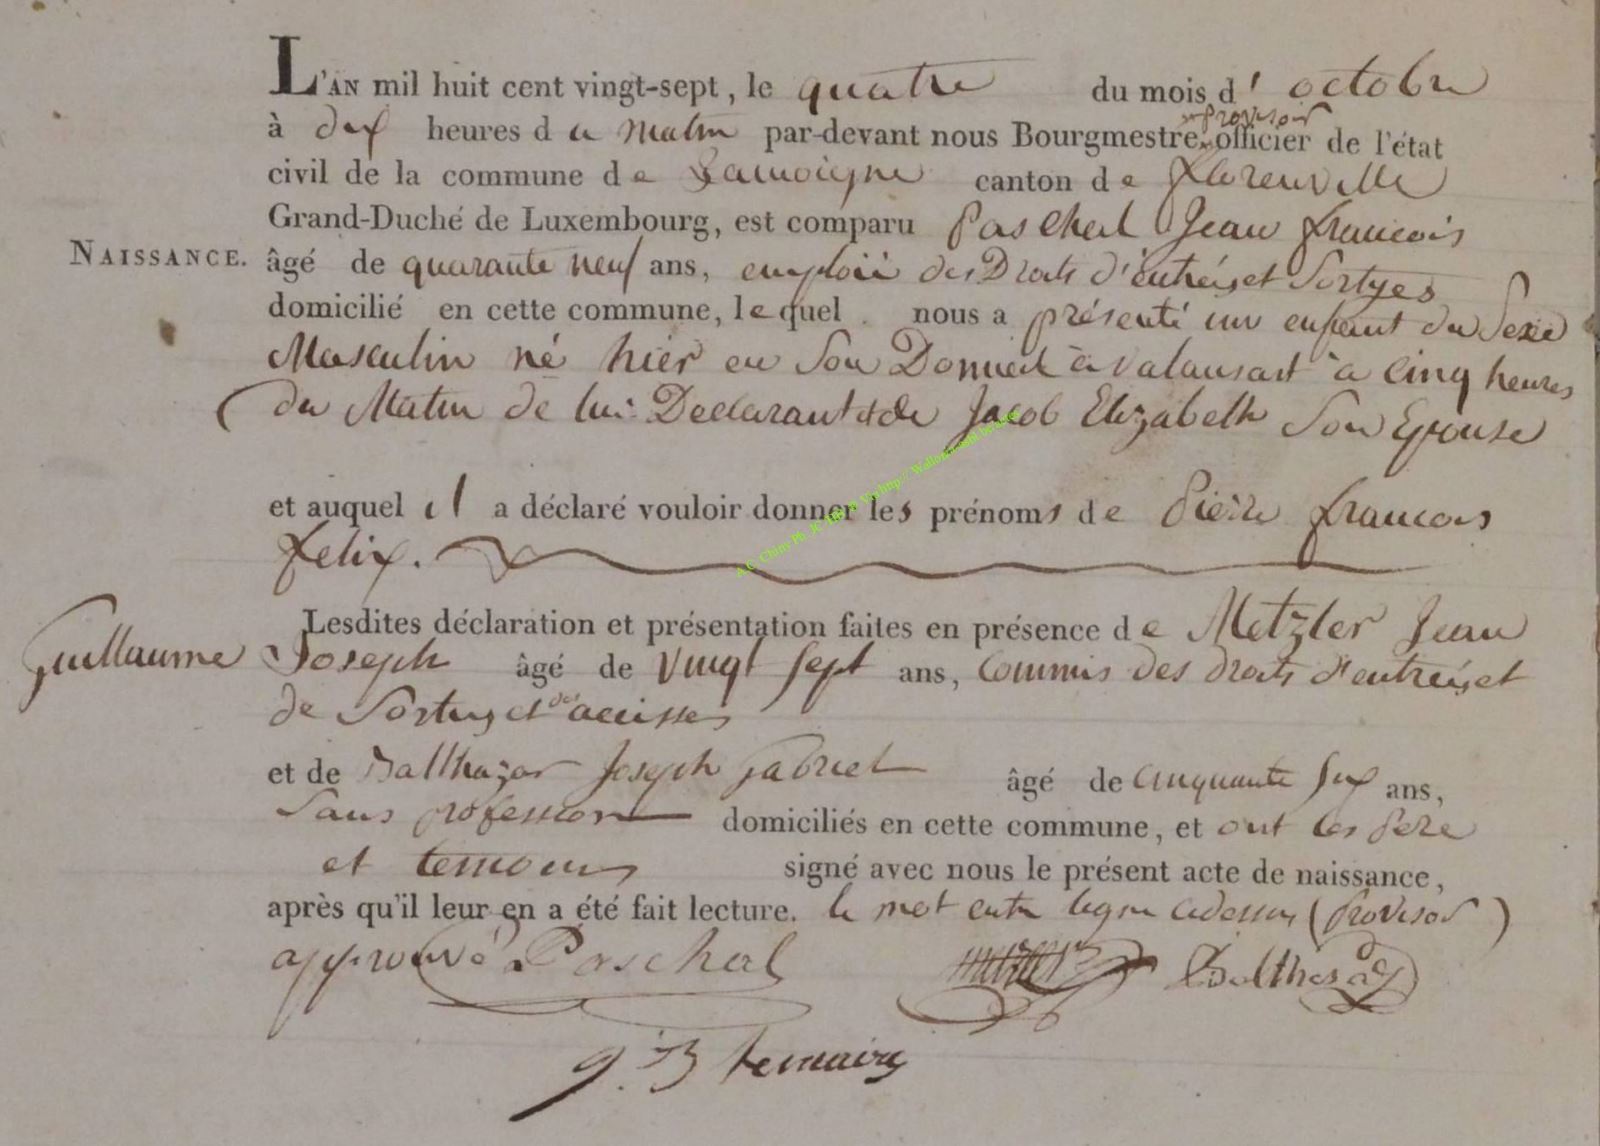 L'AN mil huit cent vingt-sept, le quatre du mois d' octobre
provisoir
à dix heures du matin par-devant nous Bourgmestre officier de l'état
civil de la commune de Lamoigne canton de florenville
Grand-Duché de Luxembourg, est comparu Paschal Jean francois
NAISSANCE.
âgé de quarante neuf ans, emploié des Droits d'entrées et Sortyes
domicilié en cette commune, lequel nous a présenté un enfant du Sexe
Masculin né hier en Son Domicil à valansart à cinq heures
du Matin de lui Declarant et de Jacob Elizabeth Son Epouse
et auquel il a déclaré vouloir donner les prénoms de Pierre francois
felix.
Lesdites déclaration et présentation faites en présence de Metzler Jean
Guillaume Joseph âgé de vingt sept ans, commis des droits d'entrées et
de Sorties et des accisses
et de Balthazar Joseph gabriel âgé de cinquante six ans,
Sans profession domiciliés en cette commune, et ont les Pere
et temoins signé avec nous le présent acte de naissance,
après qu'il leur en a été fait lecture. le mot entre ligne cidessus (provisoir)
approuvé Paschal Balthasar
g. B. lemaire